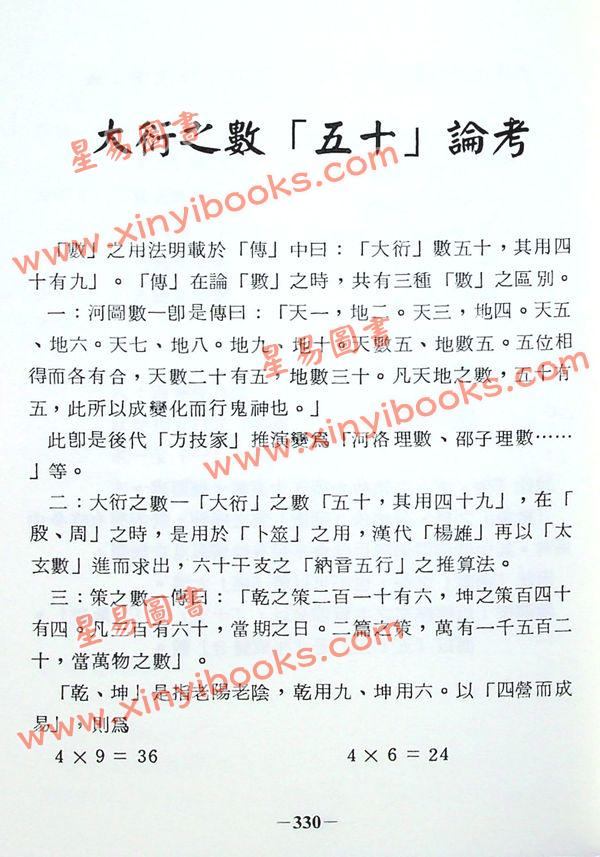 大衍之數「五十」論考
「數」之用法明載於「傳」中曰：「大衍」數五十，其用四
十有九」。「傳」在論「數」之時，共有三種「數」之區別。
一：河圖數—卽是傳曰：「天一，地二。天三，地四。天五
、地六。天七、地八。地九、地十。天數五、地數五。五位相
得而各有合，天數二十有五，地數三十。凡天地之數，五十有
五，此所以成變化而行鬼神也。」
此卽是後代「方技家」推演變爲「河洛理數、邵子理數……
」等。
二：大衍之數—「大衍」之數「五十，其用四十九」，在「
殷、周」之時，是用於「卜筮」之用，漢代「楊雄」再以「太
玄數」進而求出，六十干支之「納音五行」之推算法。
三：策之數—傳曰：「乾之策二百一十有六，坤之策百四十
有四。凡三百有六十，當期之日。二篇之策，萬有一千五百二
十，當萬物之數」。
「乾、坤」是指老陽老陰，乾用九、坤用六。以「四營而成
易」，則爲
4 × 9 = 36 4 × 6 = 24
—330—
星易圖書
www.xinyibooks.com
星易圖書
www.xinyibooks.com
星易圖書
www.xinyibooks.com